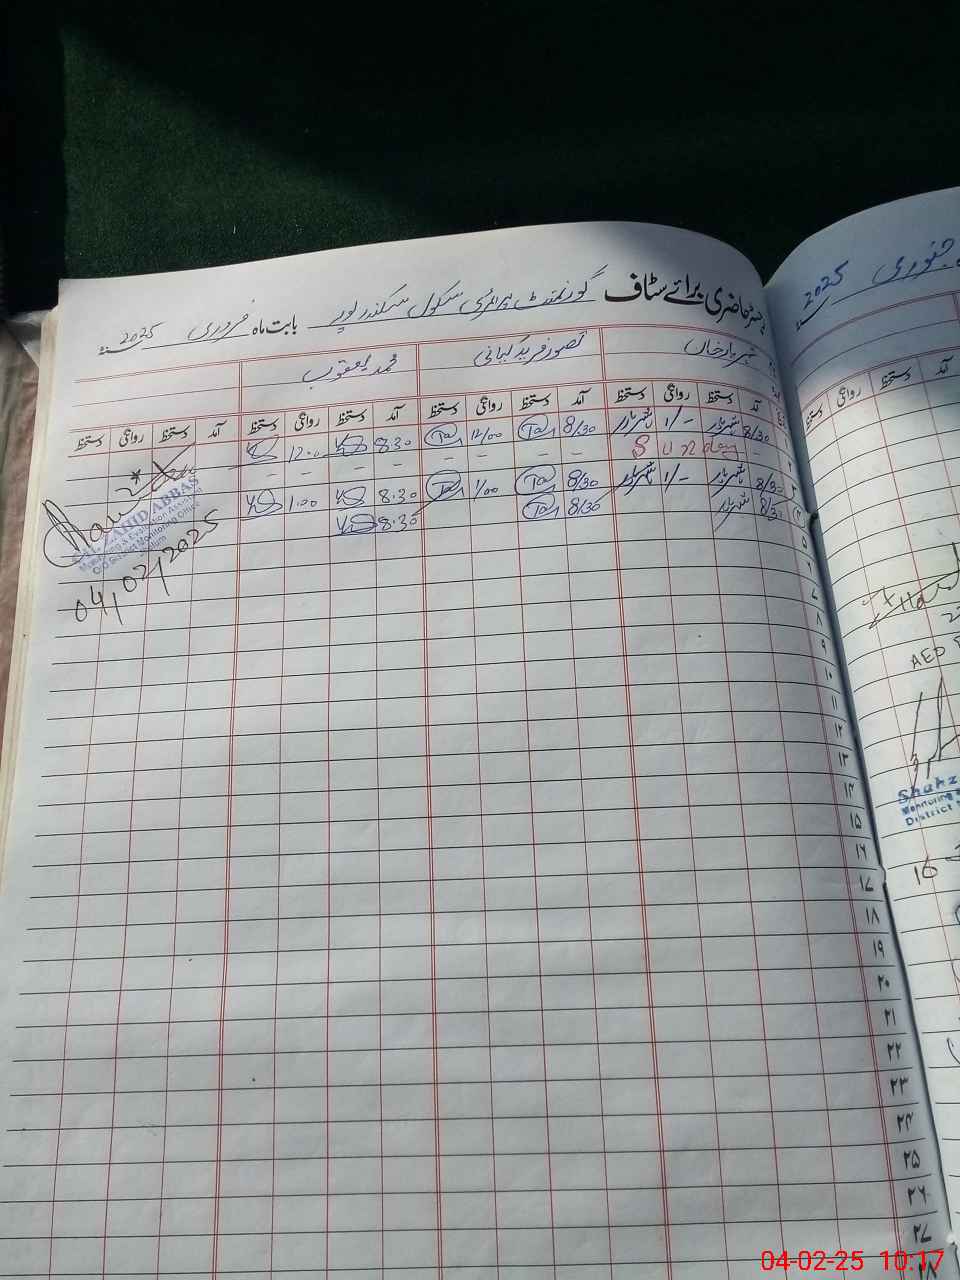 رجسٹر حاضری برائے سٹاف گورنمنٹ پرائمری سکول سکندرپور بابت ماہ فروری 2025
شہریار خان تصور فرید کیانی محمد یعقوب
آمد دستخط روانگی دستخط آمد دستخط روانگی دستخط آمد دستخط روانگی دستخط آمد دستخط روانگی دستخط
۱ 8/30 شہریار 1/- شہریار 8/30 12/00 8.30 12.00
۲ Sunday
۳ 8/30 شہریار 1/- شہریار 8/30 1/00 8.30 1.00
۴ 8/30 شہریار 8/30 8.30
ZAHID ABBAS
Monitoring & Evaluation Assistant
O/O District Monitoring Officer
04/02/2025
۵
۶
۷
۸
۹
۱۰
۱۱
۱۲
۱۳
۱۴
۱۵
۱۶
۱۷
۱۸
۱۹
۲۰
۲۱
۲۲
۲۳
۲۴
۲۵
۲۶
۲۷
۲۸
جنوری 2025
آمد دستخط روانگی دستخط
AEO
Monitoring
District
16
04-02-25 10:17